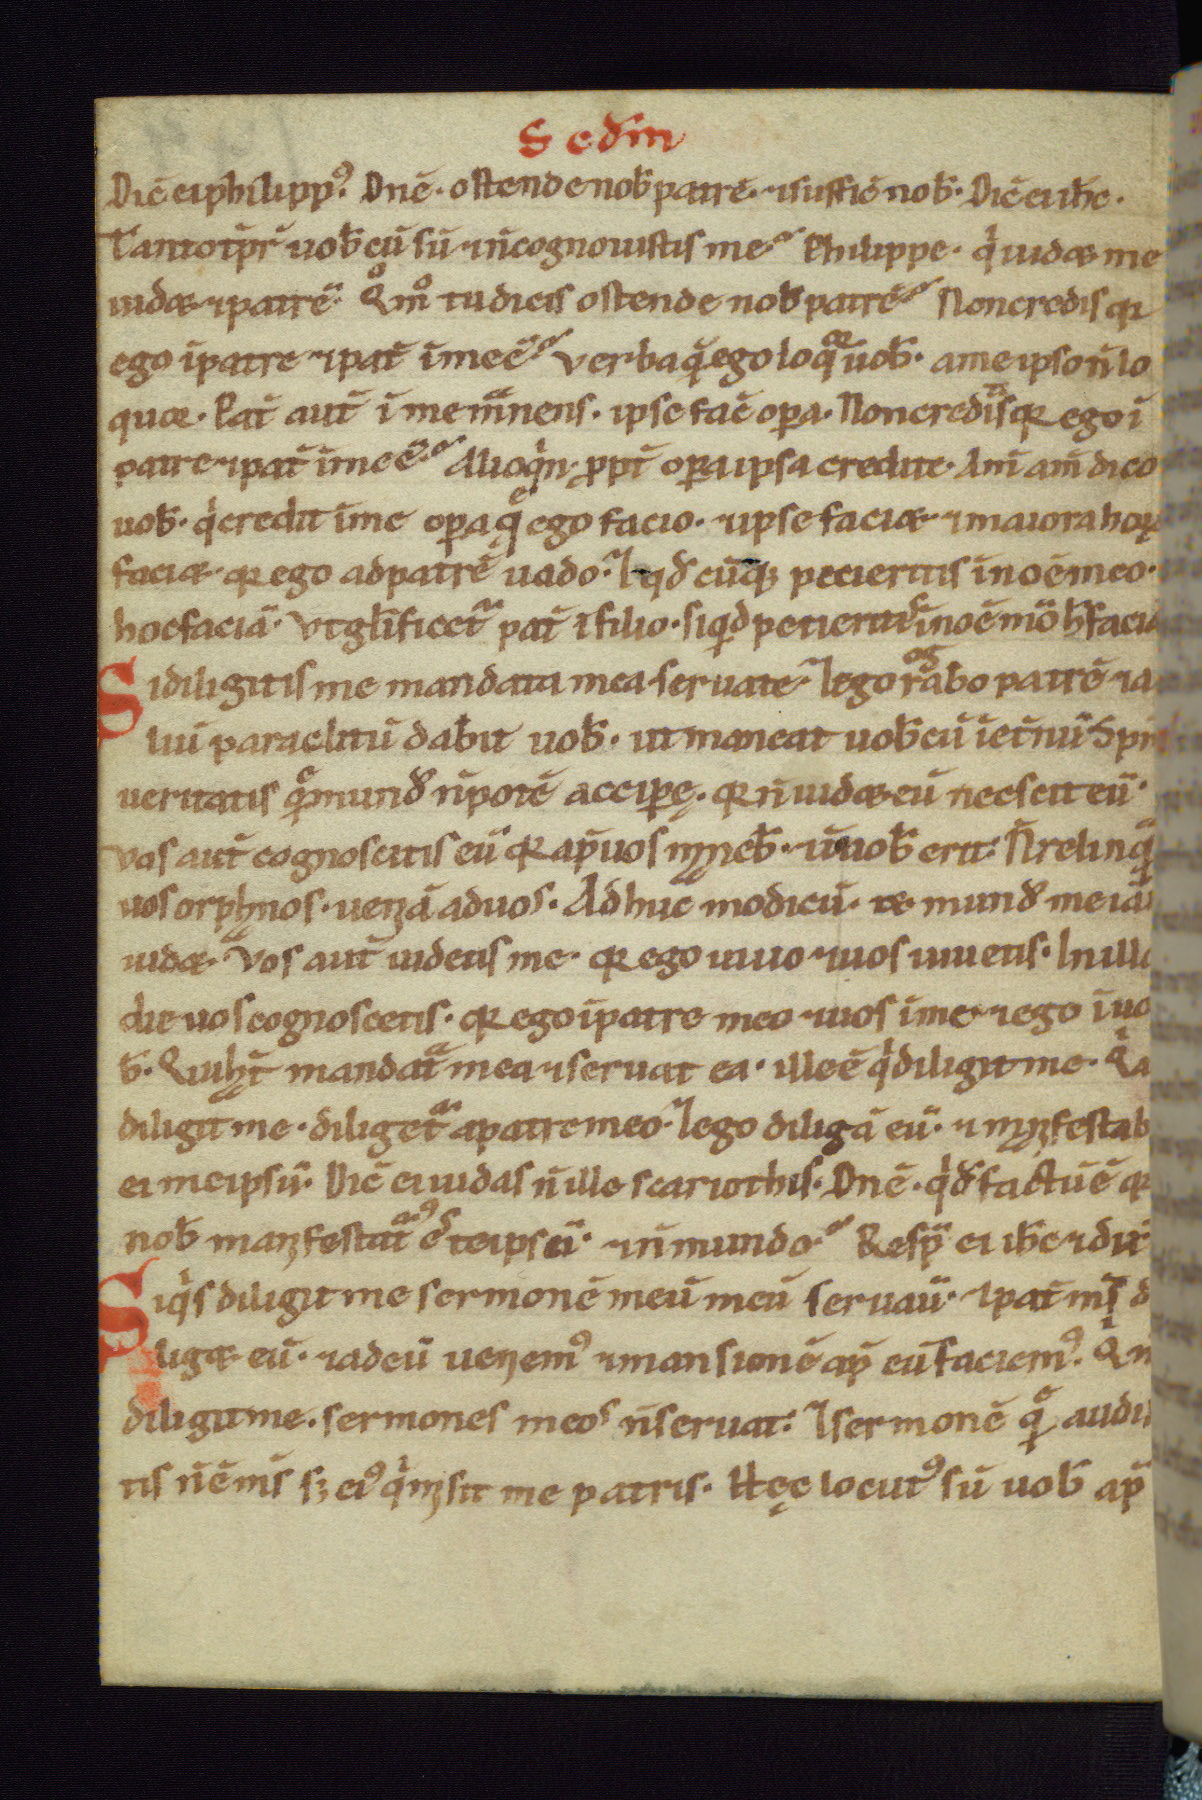 Sedm
Dic̄ ei philipp᾿. Dn̄e. ostende nob̄ patrē. ⁊ suffic̄ nob̄. Dic̄ ei ih̄c.
Tanto tp̄r uob̄cū sū ⁊ n̄ cognouistis me? Philippe. q̍ uidæ me
uidæ ⁊ patrē. Qm̊ tu dicis ostende nob̄ patrē? Non credis qꝛ
ego ī patre ⁊ pat̄ ī me ē? Verba q̄ ego loq̄r uob̄. a me ipso n̄ lo
quor. Pat̄ aut̄ ī me manens. ipse fac̄ oꝑa. Non creditis qꝛ ego ī
patre ⁊ pat̄ ī me ē? Alioq̍n ꝓpt̄ oꝑa ipsa credite. Am̄ am̄ dico
uob̄. q̍ credit ī me oꝑa q̄ ego facio. ⁊ ipse faciæ. ⁊ maiora hoꝝ
faciæ. qꝛ ego ad patrē uado. ⁊ qd̄ cūqꝫ pecieritis ī noē meo.
hoc faciā. Vt gl̄ificet̄ pat̄ ī filio. si qd̄ petieritis me ī noē mō h̄ faciā
Si diligitis me mandata mea seruate. ⁊ ego rogabo patrē ⁊ a
liū paraclitū dabit uob̄. ut maneat uob̄cū ī et̄nū Spm̄
ueritatis quē mund᾿ n̄ potē accipe. qꝛ n̄ uidæ eū nec scit eū.
Vos aut̄ cognoscitis eū qꝛ ap̄ uos maneb̄. ⁊ ī uob̄ erit. N̄ relinqā
uos orphanos. ueniā ad uos. Ad huc modicū. ⁊ mund᾿ me iā n̄
uidæ. Vos aut̄ uidetis me. qꝛ ego uiuo ⁊ uos uiuetis. In illo
die uos cognoscetis. qꝛ ego ī patre meo ⁊ uos ī me ⁊ ego ī uo
b̄. Qui h̄t mandata mea ⁊ seruat ea. ille ē q̍ diligit me. Q̍ a
diligit me. diliget̄ a patre meo. ⁊ ego diligā eū. ⁊ manifestab
ei me ipsū. Dic̄ ei iudas n̄ ille scariothis. Dn̄e. q̍d factū ē qꝛ
nob̄ manifestatur᾿ es te ipsū. ⁊ n̄ mundo? Resp̄ ei ih̄c ⁊ dix̄
Si q̍s diligit me sermonē meū meū seruau. ⁊ pat̄ ms̄ di
ligæ eū. ⁊ ad eū ueniem᾿ ⁊ mansionē ap̄ eū faciem᾿. Q̍ n̄
diligit me. sermones meos n̄ seruat. ⁊ sermonē quē audis
tis n̄ ē ms̄ sꝫ ei᾿ q̍ misit me patris. Hęc locut᾿ sū uob̄ ap̄